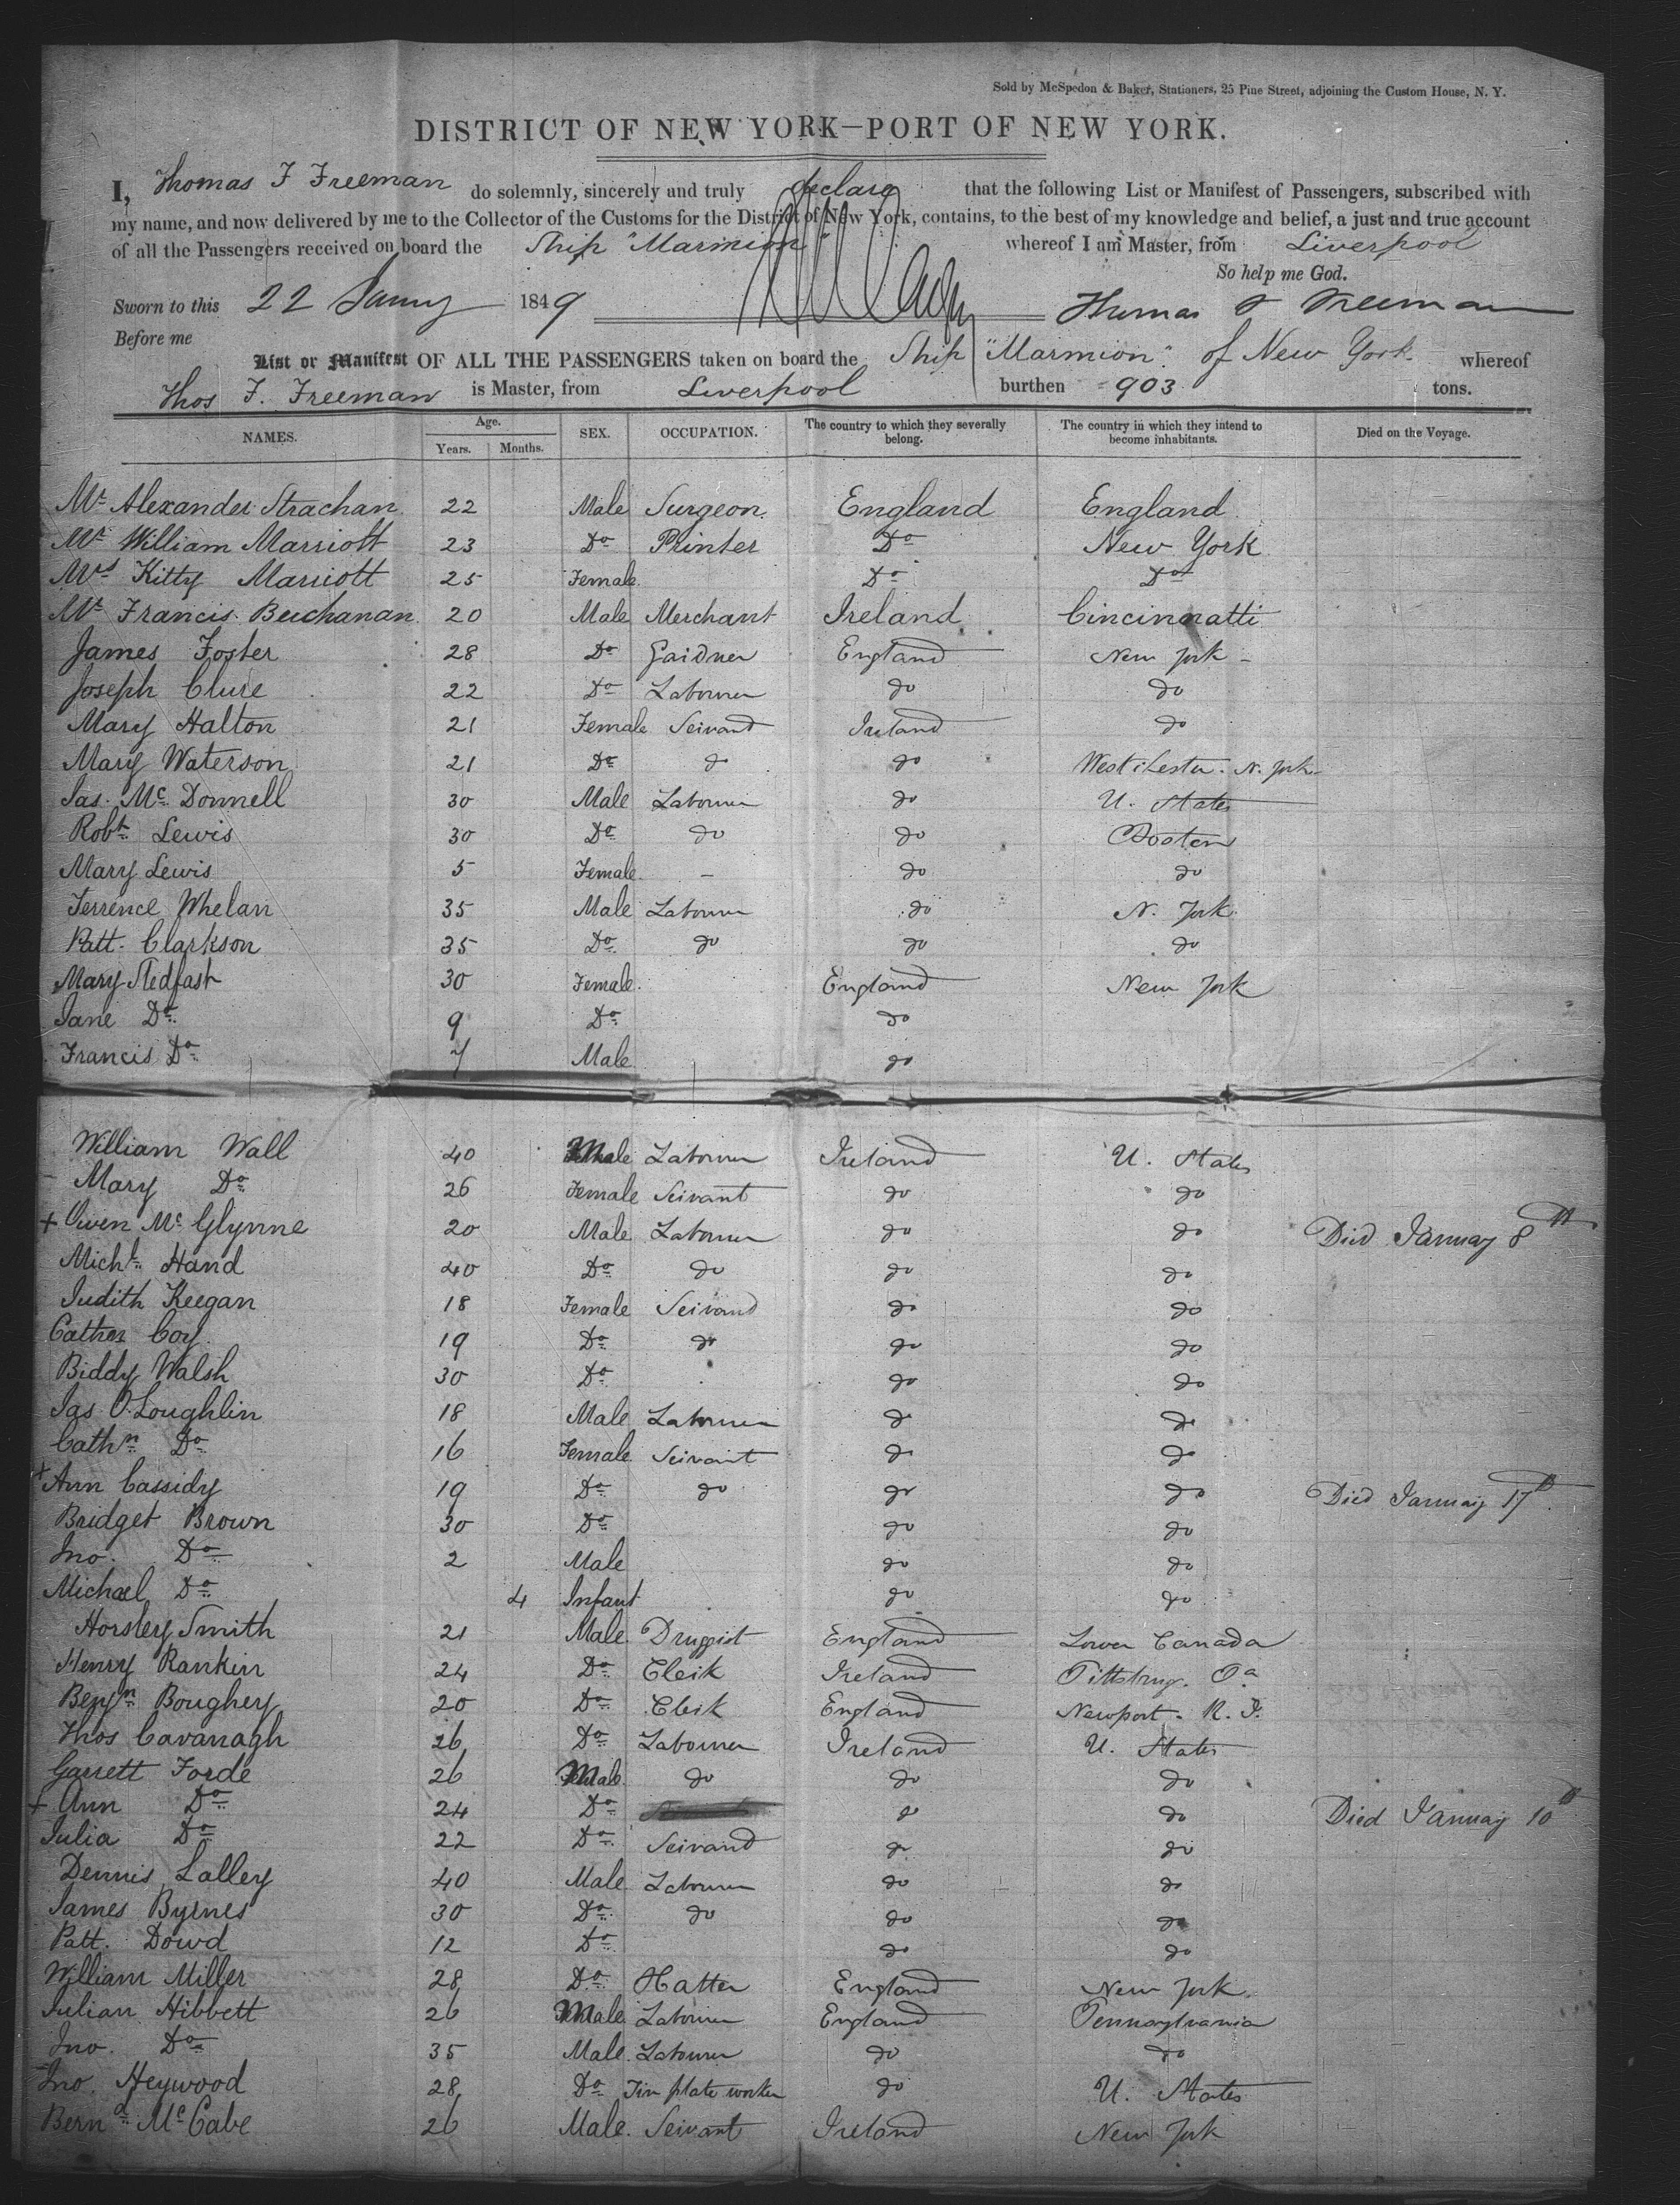 Sold by McSpedon & Baker, Stationers, 25 Pine Street, adjoining the Custom House, N. Y.
DISTRICT OF NEW YORK—PORT OF NEW YORK.
I, Thomas F Freeman do solemnly, sincerely and truly declare that the following List or Manifest of Passengers, subscribed with
my name, and now delivered by me to the Collector of the Customs for the District of New York, contains, to the best of my knowledge and belief, a just and true account
of all the Passengers received on board the Ship "Marmion" whereof I am Master, from Liverpool
So help me God.
Sworn to this 22 Janury 1849 Thomas F Freeman
Before me
List or Manifest OF ALL THE PASSENGERS taken on board the Ship "Marmion" of New York whereof
Thos F. Freeman is Master, from Liverpool burthen 903 tons.
NAMES. Age. Years. Months. SEX. OCCUPATION. The country to which they severally belong. The country in which they intend to become inhabitants. Died on the Voyage.
Mr Alexander Strachan 22 Male Surgeon England England
Mr William Marriott 23 Do Printer Do New York
Mrs Kitty Marriott 25 Female Do Do
Mr Francis Buchanan 20 Male Merchant Ireland Cincinnatti
James Foster 28 Do Gardner England New York
Joseph Clure 22 Do Labourer do do
Mary Halton 21 Female Servant Ireland do
Mary Waterson 21 Do do do Westchester. N. York
Jas. Mc Donnell 30 Male Labourer do U. States
Robt Lewis 30 Do do do Boston
Mary Lewis 5 Female - do do
Terrence Whelan 35 Male Labourer do N. York
Patt. Clarkson 35 Do do do do
Mary Stedfast 30 Female England New York
Jane Do 9 Do do
Francis Do 7 Male do
William Wall 40 Male Labourer Ireland U. States
Mary Do 26 Female Servant do do
+ Owen Mc Glynne 20 Male Labourer do do Died January 8th
Michl Hand 40 Do do do do
Judith Keegan 18 Female Servant do do
Cathn Coy 19 Do do do do
Biddy Walsh 30 Do do do
Jas O'Loughlin 18 Male Labourer do do
Cathn Do 16 Female Servant do do
+ Ann Cassidy 19 Do do do do Died January 17th
Bridget Brown 30 Do do do
Jno. Do 2 Male do do
Michael Do 4 Infant do do
Horsley Smith 21 Male Druggist England Lower Canada
Henry Rankin 24 Do Clerk Ireland Pittsburg. Pa
Benjn Boughey 20 Do Clerk England Newport. R. I.
Thos Cavanagh 26 Do Labourer Ireland U. States
Garrett Forde 26 Male do do do
+ Ann Do 24 Do do do Died January 10th
Julia Do 22 Do Servant do do
Dennis Lalley 40 Male Labourer do do
James Byrnes 30 Do do do do
Patt. Dowd 12 Do do do
William Miller 28 Do Hatter England New York
Julian Hibbett 26 Male Labourer England Pennsylvania
Jno. Do 35 Male Labourer do do
Jno. Heywood 28 Do Tin plate worker do U. States
Bernd McCabe 26 Male Servant Ireland New York